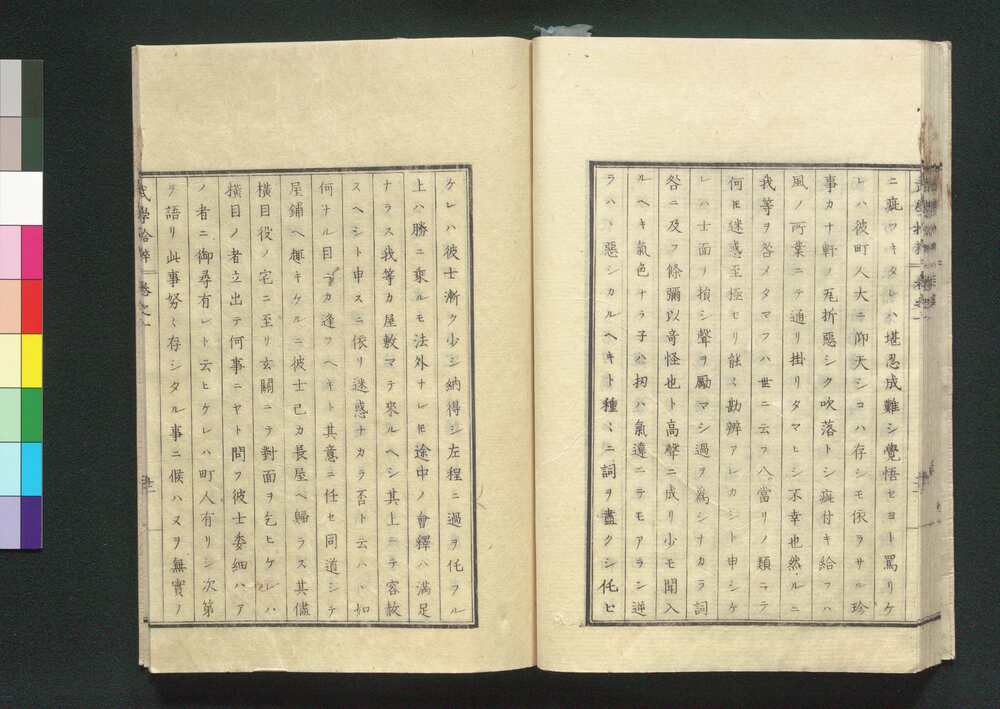 ニ疵ツキタレハ堪忍成難シ覺悟セヨト罵リケ
レハ彼町人大ニ仰天シコハ存シモ依ラサル珍
事カナ軒ノ瓦折惡シク吹落トシ疵付キ給フハ
風ノ所業ニテ通リ掛リタマヒシ不幸也然ルニ
我等ヲ咎メタマフハ世ニ云フ八當リノ類ニテ
何ﾄﾓ迷惑至極セリ能〻勘辨アレカシト申シケ
レハ士面ヲ損シ聲ヲ勵マシ過ヲ爲シナカラ詞
咎ニ及フ條彌以奇怪也ト高聲ニ成リ少モ聞入
ルヘキ氣色ナラ子ハ扨ハ氣違ニテモアラン逆
ラハヽ惡シカルヘキト種〻ニ詞ヲ盡クシ侘ヒ
ケレハ彼士漸ク少シ納得シ左程ニ過ヲ侘フル
上ハ勝ニ乗ルモ法外ナレﾄﾓ途中ノ會釋ハ滿足
ナラス我等カ屋敷マテ來ルヘシ其上ニテ容赦
スヘシト申スニ依リ迷惑ナカラ否ト云ハヽ如
何ナル目ニカ逢フヘキト其意ニ任セ同道シテ
屋鋪ヘ趣キケルニ彼士己カ長屋ヘ歸ラス其儘
橫目役ノ宅ニ至リ玄關ニテ對面ヲ乞ヒケレハ
橫目ノ者立出テ何事ニヤト問フ彼士委細ハア
ノ者ニ御尋有レト云ヒケレハ町人有リシ次第
ヲ語リ此事努〻存シタル事ニ候ハスヲ無實ノ
武學拾粹 卷之